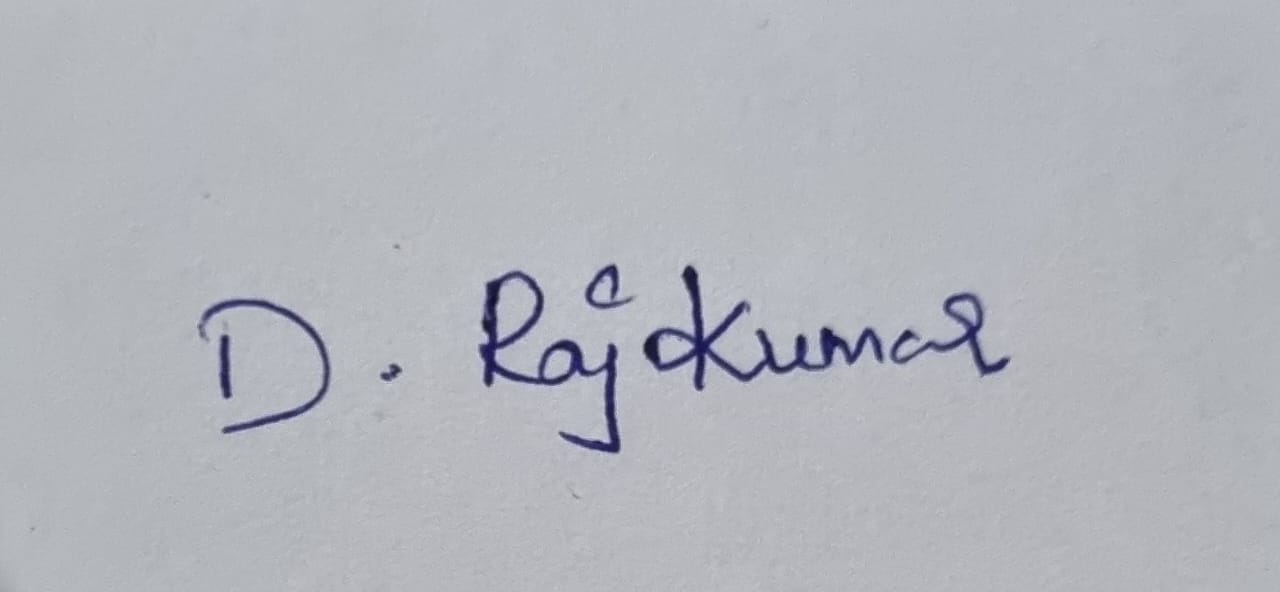 D. Rajkumar